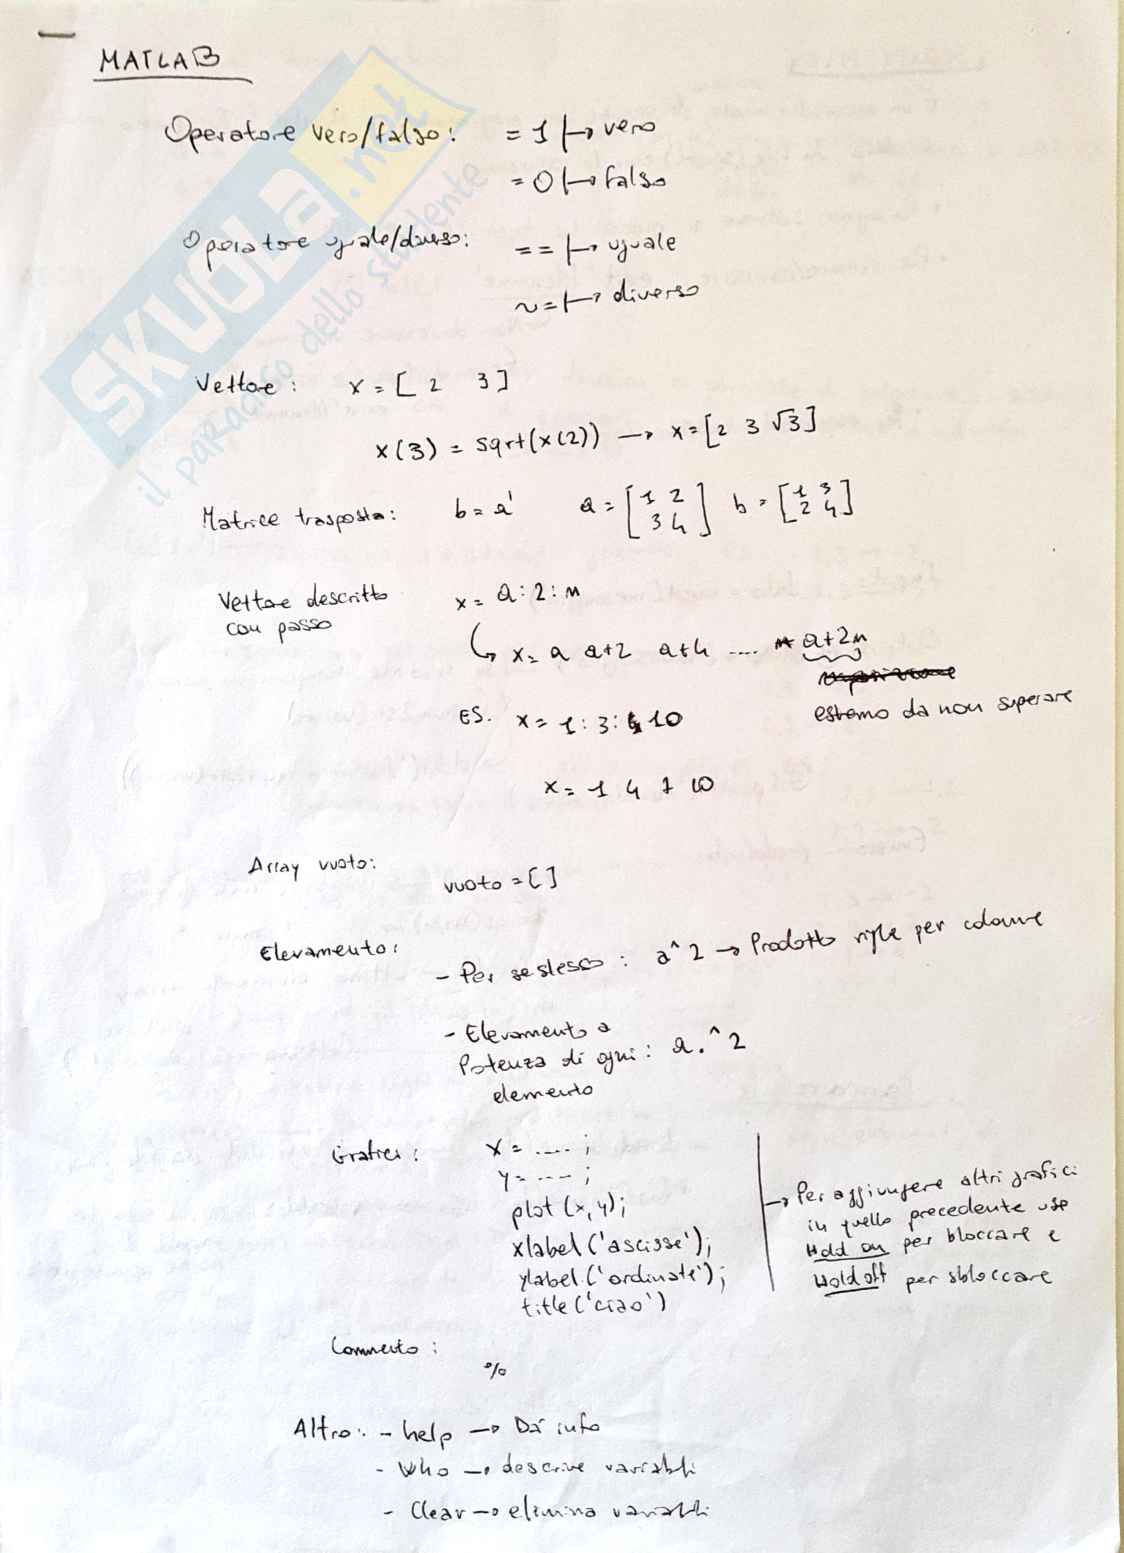 MATLAB
Operatore vero/falso: = 1 |→ vero
= 0 |→ falso
Operatore uguale/diverso: == |→ uguale
~= |→ diverso
Vettore: x = [ 2 3 ]
x(3) = sqrt(x(2)) → x = [2 3 √3]
Matrice trasposta: b = a' a = [1 2 b = [1 3
3 4] 2 4]
Vettore descritto x = a:2:n
con passo
x = a a+2 a+4 .... a+2n
estremo da non superare
ES. x = 1:3:10
x = 1 4 7 10
Array vuoto:
vuoto = [ ]
Elevamento:
- Per se stesso : a^2 → Prodotto righe per colonne
- Elevamento a
Potenza di ogni : a.^2
elemento
Grafici : x = .... ;
y = .... ;
plot (x,y);
xlabel ('ascisse');
ylabel ('ordinate');
title ('ciao')
→ Per aggiungere altri grafici
in quello precedente uso
Hold on per bloccare e
Hold off per sbloccare
Commento :
%
Altro: - help → Dà info
- Who → descrive variabili
- Clear → elimina variabili
SKUOLA.net
il paradiso dello studente